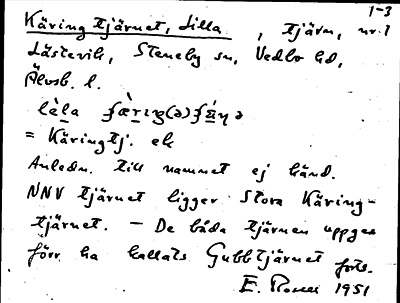 1-3
Käringtjärnet, Lilla, tjärn, nr. 1
Låstevik, Steneby sn, Vedbo hd,
Älvsb. l.
= Käringtj. ek
Anledn. till namnet ej känd.
NNV tjärnet ligger Stora Käring-
tjärnet. – De båda tjärnen uppges
förr ha kallats Gubbtjärnet forts.
1951